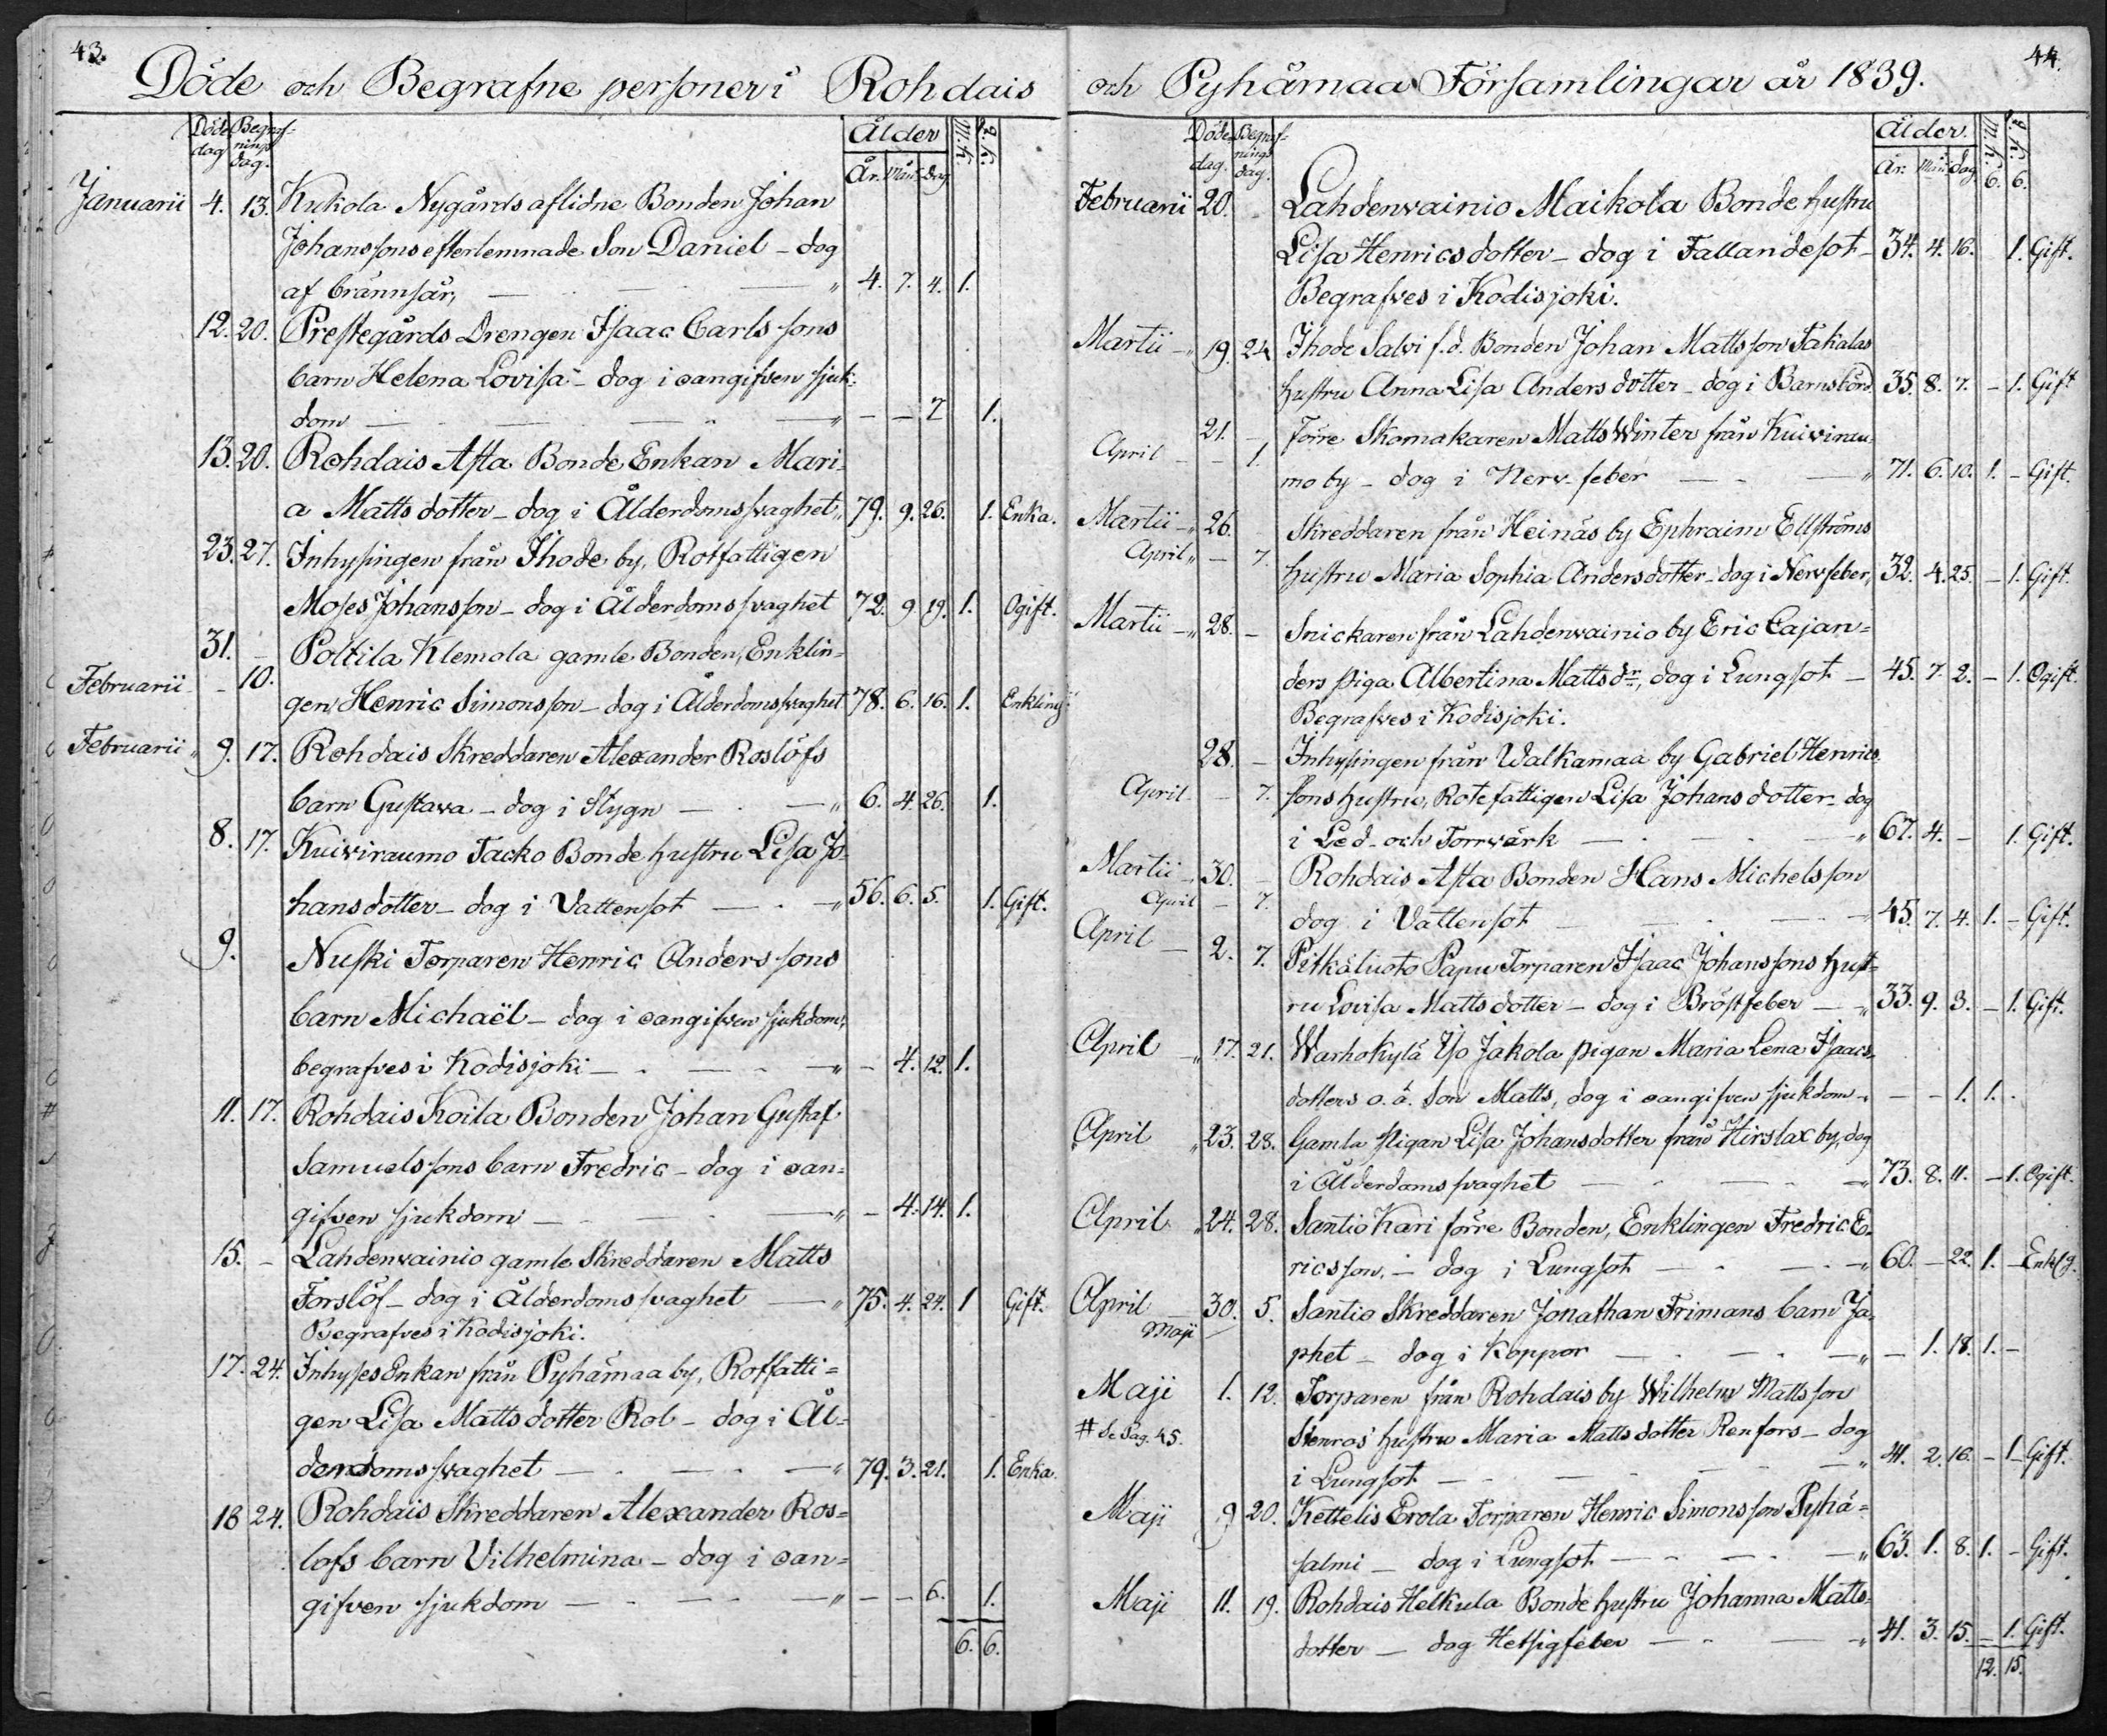 43.
Döde och Begrafne personer i Rohdais
Döde dag
Begrafnings dag.
Ålder
År. Mån. dag
M.K. Q.K.
Januarii 4. 13. Kukola Nygårds aflidne Bonden Johan
Johanssons efterlemnade Son Daniel - dog
af brännsår, 4. 7. 4. 1.
12. 20. Prestegårds Drengen Isaac Carlssons
barn Helena Lovisa - dog i oangifven sjuk-
dom - - 7 1.
13. 20. Rohdais Asta Bonde Enkan Mari-
a Matts dotter - dog i Ålderdomssvaghet 79. 9. 26. 1. Enka.
23. 27. Inhysingen från Ihode by, Rotfattigen
Moses Johansson - dog i Ålderdomssvaghet 72. 9 19. 1. Ogift.
31. - Poltila Klemola gamle Bonden, Enklin-
Februarii - 10. gen Henric Simonsson - dog i Ålderdomssvaghet 78. 6. 16. 1. Enkling
Februarii 9. 17. Rohdais Skreddaren Alexander Roslöfs
barn Gustava - dog i Stygn 6. 4. 26. 1.
8. 17. Kuiviraumo Jacko Bonde hustru Lisa Jo-
hansdotter - dog i Vattensot 56. 6. 5. 1. Gift.
9. Nuski Torparen Henric Anderssons
barn Michaël - dog i oangifven sjukdom,
begrafves i Kodisjoki - 4. 12. 1.
11. 17. Rohdais Koila Bonden Johan Gustaf
Samuelssons barn Fredric - dog i oan-
gifven sjukdom - 4. 14. 1.
15. - Lahdenvainio gamle Skreddaren Matts
Forslöf - dog i Ålderdomssvaghet 75. 4. 24. 1 Gift.
Begrafves i Kodisjoki.
17. 24. Inhyses Enkan från Pyhämaa by, Rotfatti-
gen Lisa Matts dotter Rol - dog i Ål-
derdomssvaghet 79. 3. 21. 1. Enka.
18 24. Rohdais Skreddaren Alexander Ros-
lofs barn Vilhelmina - dog i oan-
gifven sjukdom - - 6. 1.
6. 6.
44.
och Pyhämaa Församlingar år 1839.
Döde dag.
Begrafnings dag.
Ålder.
År. Mån. dag
M.K. Q.K.
6. 6.
Februarii 20. Lahdenvainio Maikola Bonde hustru
Lisa Henricsdotter - dog i Fallandesot - 34. 4. 16. 1. Gift.
Begrafves i Kodisjoki.
Martii - 19. 24 Ihode Salvi f.d. Bonden Johan Mattsson Takalas
hustru Anna Lisa Andersdotter - dog i Barnsbörd 35. 8. 7. - 1. Gift
21. - förre Skomakaren Matts Winter från Kuivirau-
April - - 1. mo by - dog i Nerv-feber 71. 6. 10. 1. - Gift.
Martii - 26. Skreddaren från Heinäs by Ephraim Ellströms
April - 7. hustru Maria Sophia Andersdotter - dog i Nervfeber, 32. 4. 25. - 1. Gift.
Martii - 28. - Snickaren från Lahdenvainio by Eric Cajan-
ders piga Albertina Matts dr, dog i Lungsot - 45. 7. 2. - 1. Ogift.
Begrafves i Kodisjoki.
28. - Inhysingen från Walkamaa by Gabriel Henrics
April - 7. sons hustru, Rotefattigen Lisa Johansdotter - dog
i Led- och Torrvärk 67. 4. - 1. Gift.
Martii - 30. - Rohdais Asta Bonden Hans Michelsson
April - 7. dog i Vattensot 45. 7. 4. 1. - Gift.
April - 2. 7. Pitkäluoto Papu Torparen Isaac Johanssons hust-
ru Lovisa Mattsdotter - dog i Bröstfeber 33. 9. 3. - 1. Gift.
April 17. 21. Warhokylä Jakola pigan Maria Lena Isaacs-
dotters o. ä. Son Matts, dog i oangifven sjukdom - - - 1. 1.
April 23. 28. Gamla pigan Lisa Johansdotter från Hirslax by, dog
i Ålderdomssvaghet 73. 8. 11. - 1. Ogift.
April 24. 28. Santio Kari förre Bonden, Enklingen Fredric E-
ricsson, - dog i Lungsot 60. - 22. 1. - Enklg.
April - 30. 5. Santio Skreddaren Jonathan Frimans barn Ja-
Maji phet - dog i Koppor - 1. 18. 1. -
Maji 1. 12. Torparen från Rohdais by Wilhelm Mattsson
# Se Pag. 45. Stenros' hustru Maria Matts dotter Renfors - dog
i Lungsot 41. 2. 16. - 1 - Gift.
Maji 9 20. Kettelis Erola Torparen Henric Simonsson Pyhä-
salmi - dog i Lungsot 63. 1. 8. 1. - Gift.
Maji 11. 19. Rohdais Helkula Bonde hustru Johanna Matts-
dotter - dog Hetsigfeber 41. 3. 15. - 1. Gift.
12. 15.